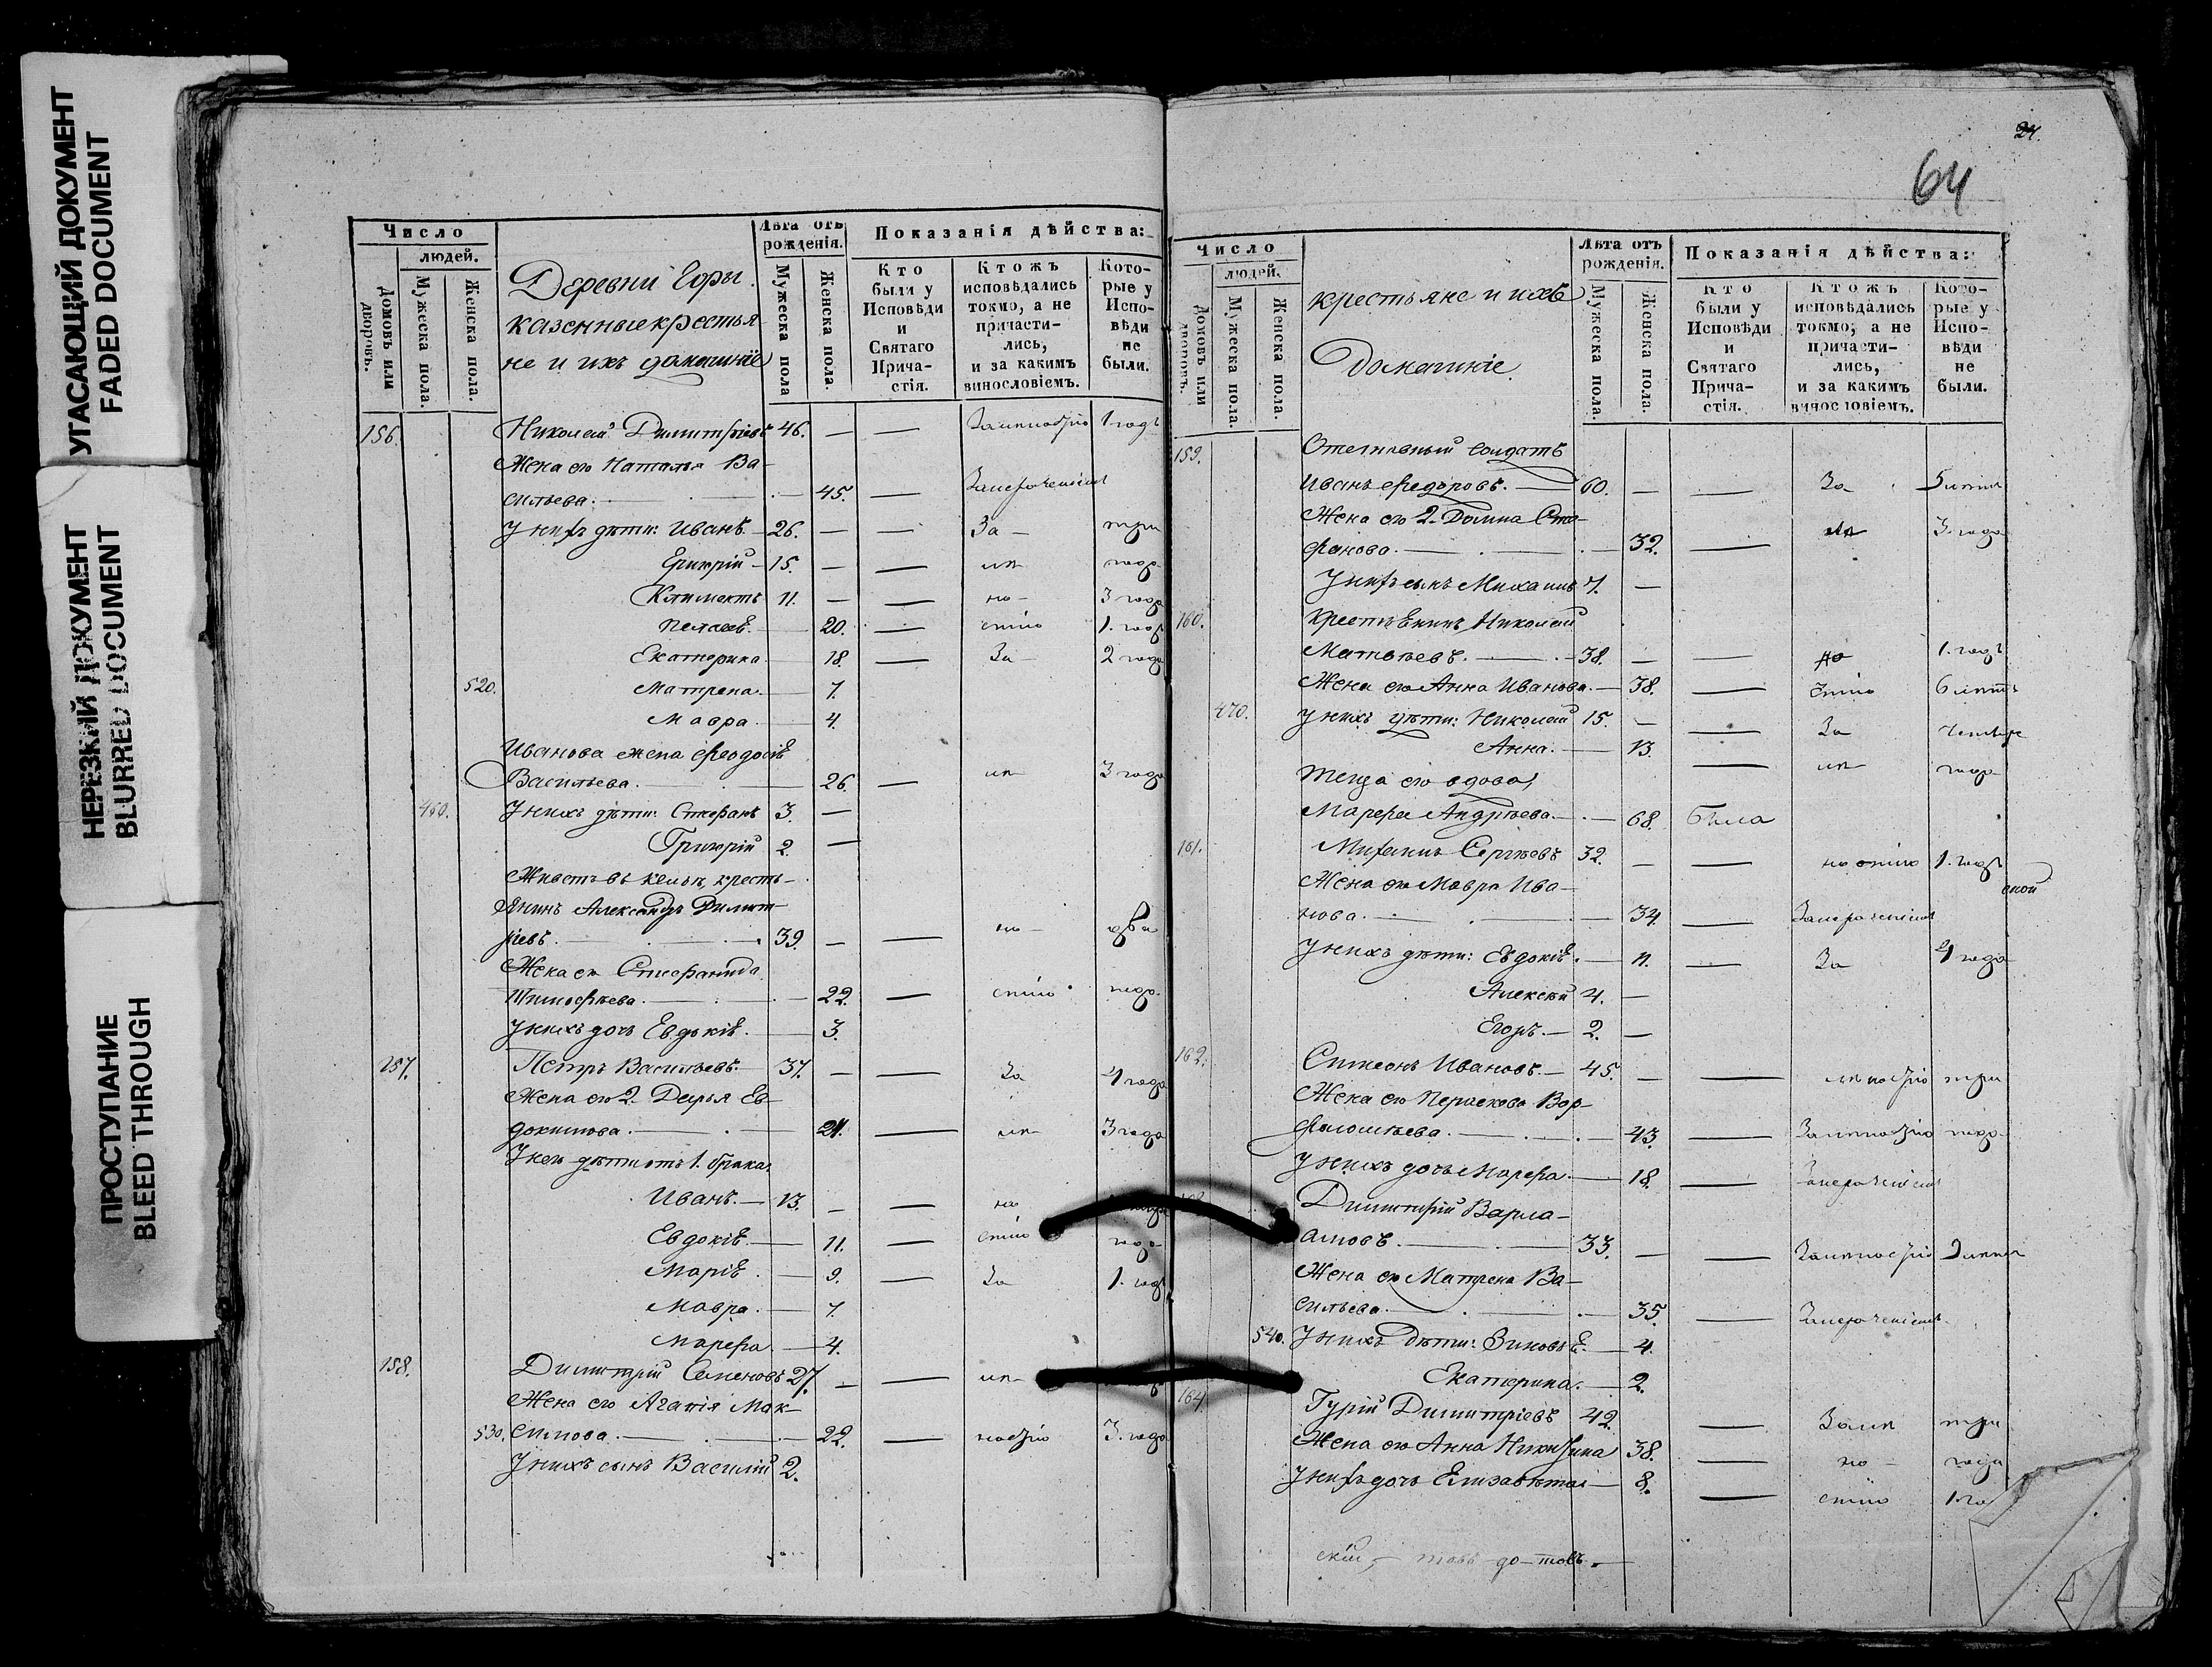 УГАСАЮЩИЙ ДОКУМЕНТ
FADED DOCUMENT
НЕРЕЗКИЙ ДОКУМЕНТ
BLURRED DOCUMENT
ПРОСТУПАНИЕ
BLEED THROUGH
Число
людей.
Домовъ или дворовъ.
Мужеска пола.
Женска пола.
Деревни Горы
казенные крестья-
не и ихъ домашніе
Лѣта отъ рожденія.
Мужеска пола
Женска пола.
Показанія дѣйства:
Кто были у Исповѣди и Святаго Прича-стія.
Ктожъ исповѣдались токмо, а не причасти-лись, и за какимъ винословіемъ.
Кото-рые у Испо-вѣди не были.
156. Николай Димитріевъ 46. — — 1 годъ
Жена его Наталья Ва-
сильева. 45. —
У нихъ дѣти: Иванъ. 26. — — За три
Григорій 15. — — не
Климентъ 11. — — по- 3 года
20. — стію 1. годъ
Екатерина 18. — За 2 года
520. Матрена. 7.
Мавра. 4.
Иванова жена Феодосія
Васильева. 26. — 3 года
460. У нихъ дѣти: Стефанъ 3. —
Григорій 2. —
Живетъ въ кельи, кресть-
янинъ Александръ Димит-
ріевъ. 39. — — два
Жена его Стефанида
Тимофѣева. 22. — стію года
У нихъ дочь Евдокія. 3.
157. Петръ Васильевъ. 37. — — За 4 года
Жена его 2. Дарья Ев-
докимова. 24. — 3 года
У нею дѣти отъ 1. брака
Иванъ. 13. — — по
Евдокія. 11. — стію года
Марія. 9. — За 1. годъ
Мавра. 7.
Марфа. 4.
158. Димитрій Семеновъ 27. — —
Жена его Агапія Мак-
530. симова. 22. — 3. года
У нихъ сынъ Василій 2.
24.
64
Число
людей.
Домовъ или дворовъ.
Мужеска пола.
Женска пола.
крестьяне и ихъ
Домашніе.
Лѣта отъ рожденія.
Мужеска пола.
Женска пола.
Показанія дѣйства:
Кто были у Исповѣди и Святаго Прича-стія.
Ктожъ исповѣдались токмо, а не причасти-лись, и за какимъ винословіемъ.
Кото-рые у Испо-вѣди не были.
159. Отставный солдатъ
Иванъ Федоровъ. 60. — — За 5
Жена его 2. Домна Сте-
фанова. 32. — 3. года
У нихъ сынъ Михаилъ 7. —
160. Крестьянинъ Николай
Матвѣевъ. 38. — — по 1. годъ
Жена его Анна Иванова. 38. — стію 6 лѣтъ
470. У нихъ дѣти: Николай 15. — — За четыре
Анна. 13. — года
Теща его вдова
Марфа Андрѣева. 68. Была
161. Михаилъ Сергѣевъ 32. — — по стію 1. годъ
Жена его Мавра Ива-
нова. 34. —
У нихъ дѣти: Евдокія. 11. — За 4 года
Алексѣй 4. —
Егоръ. 2. —
162. Симеонъ Ивановъ. 45. — — три
Жена его Параскева Вар-
фоломѣева. 43. — года
У нихъ дочь Марфа. 18. —
Димитрій Варла-
амовъ. 33. — —
Жена его Матрена Ва-
сильева. 35. —
540. У нихъ дѣти: Зиновья. 4.
Екатерина. 2.
164. Гурій Димитріевъ 42. — три
Жена его Анна Никитина 38. — по года
У нихъ дочь Елизавета 8. — стію 1